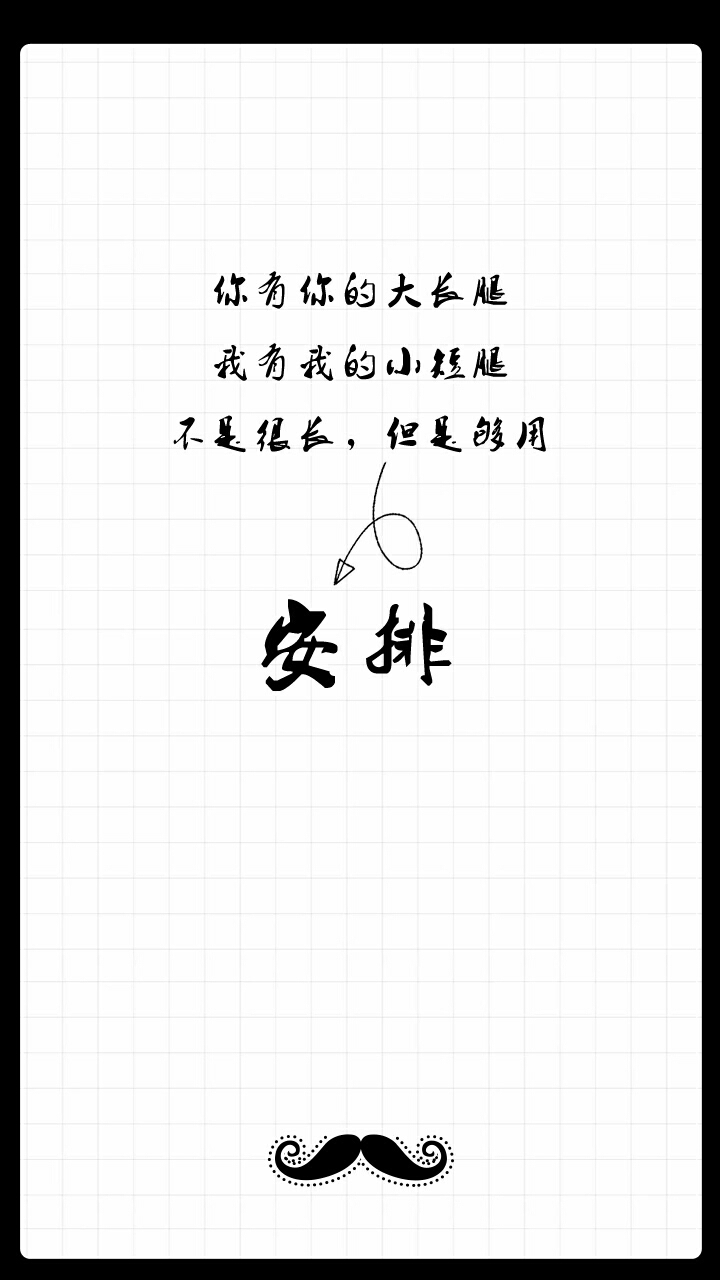 你有你的大长腿
我有我的小短腿
不是很长，但是够用
安排